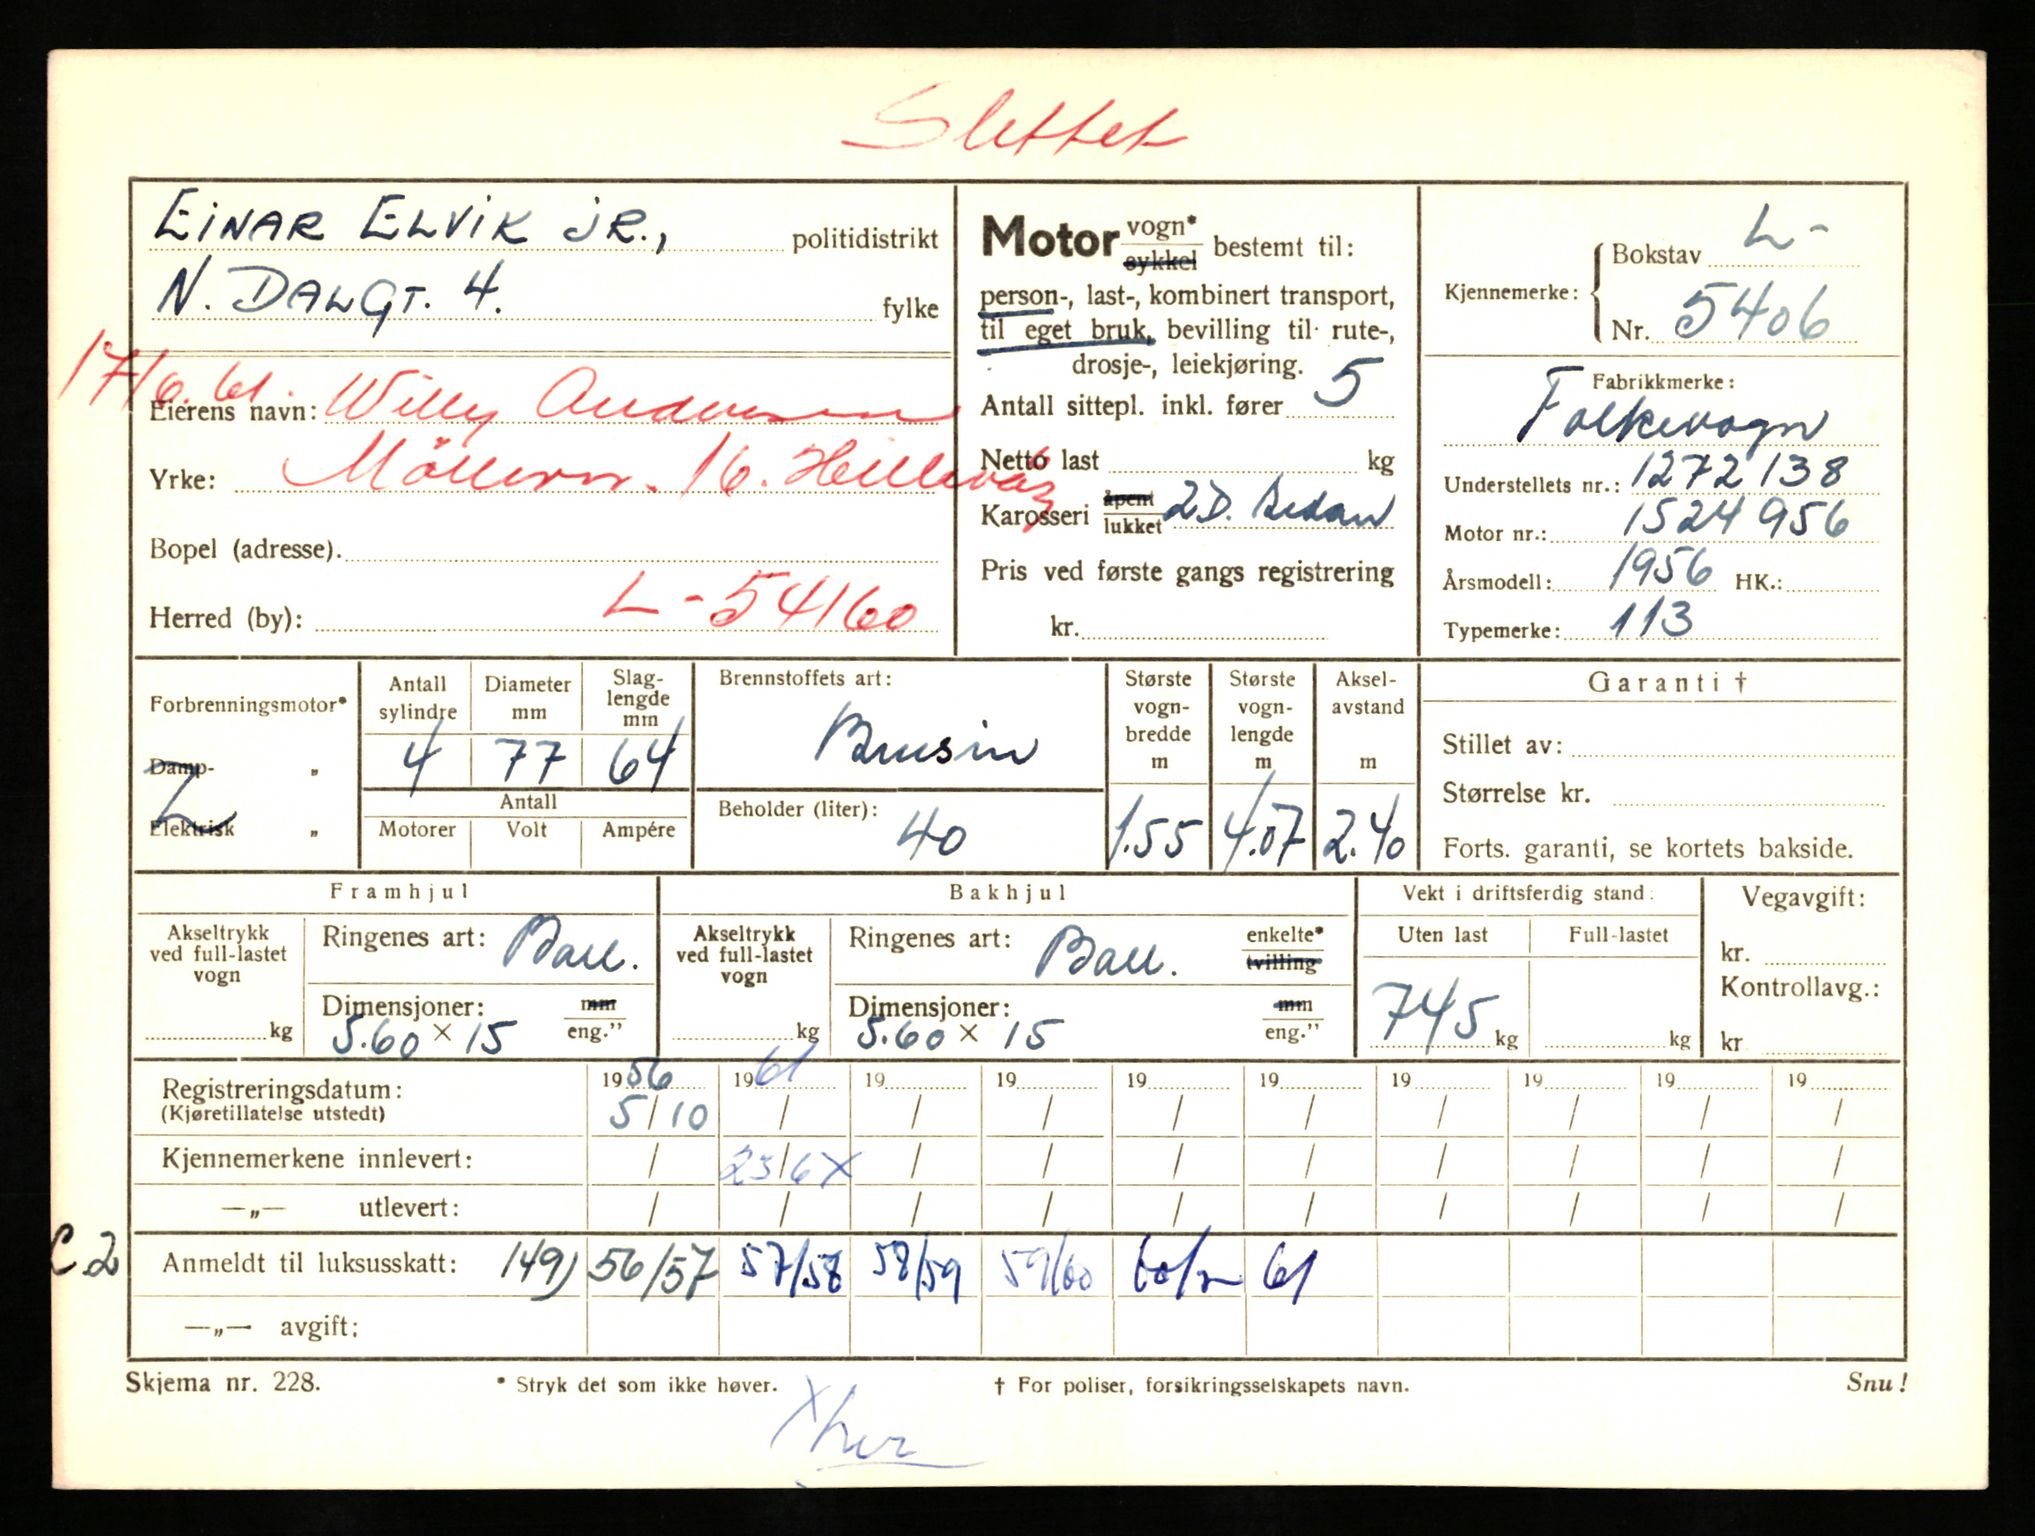 Slettet
EINAR ELVIK JR., politidistrikt
N. DALGT. 4. fylke
17/6.61.
Eierens navn: Willy Andersen
Yrke: Möllervn. 16. Hillevåg
Bopel (adresse).
Herred (by): L-54160
Motor vogn* sykkel bestemt til:
person-, last-, kombinert transport,
til eget bruk, bevilling til rute-,
drosje-, leiekjøring.
Antall sittepl. inkl. fører 5
Netto last kg
Karosseri åpent lukket 2D. Sedan
Pris ved første gangs registrering
kr.
Kjennemerke: Bokstav L-
Nr. 5406
Fabrikkmerke:
Folkevogn
Understellets nr.: 1272138
Motor nr.: 1524956
Årsmodell: 1956 HK.:
Typemerke: 113
Forbrenningsmotor*
Damp- „
Elektrisk „
Antall sylindre
4
Diameter mm
77
Slag-
lengde
mm
64
Antall
Motorer Volt Ampére
Brennstoffets art:
Bensin
Beholder (liter):
40
Største
vogn-
bredde
m
1.55
Største
vogn-
lengde
m
4.07
Aksel-
avstand
m
2.40
Garanti †
Stillet av:
Størrelse kr.
Forts. garanti, se kortets bakside.
Framhjul
Akseltrykk
ved full-lastet
vogn
kg
Ringenes art: Ball.
Dimensjoner: mm
5.60 × 15 eng.”
Bakhjul
Akseltrykk
ved full-lastet
vogn
kg
Ringenes art: Ball. enkelte* tvilling
Dimensjoner: mm
5.60 × 15 eng.”
Vekt i driftsferdig stand:
Uten last Full-lastet
745 kg kg
Vegavgift:
kr.
Kontrollavg.:
kr
Registreringsdatum: 1956 1961 19 19 19 19 19 19 19 19
(Kjøretillatelse utstedt) 5/10 / / / / / / / / /
Kjennemerkene innlevert: / 23/6 X / / / / / / / /
—„— utlevert: / / / / / / / / / /
C2 Anmeldt til luksusskatt: 149) 56/57 57/58 58/59 59/60 61
—„— avgift:
Skjema nr. 228. * Stryk det som ikke høver. † For poliser, forsikringsselskapets navn. Snu!
X her